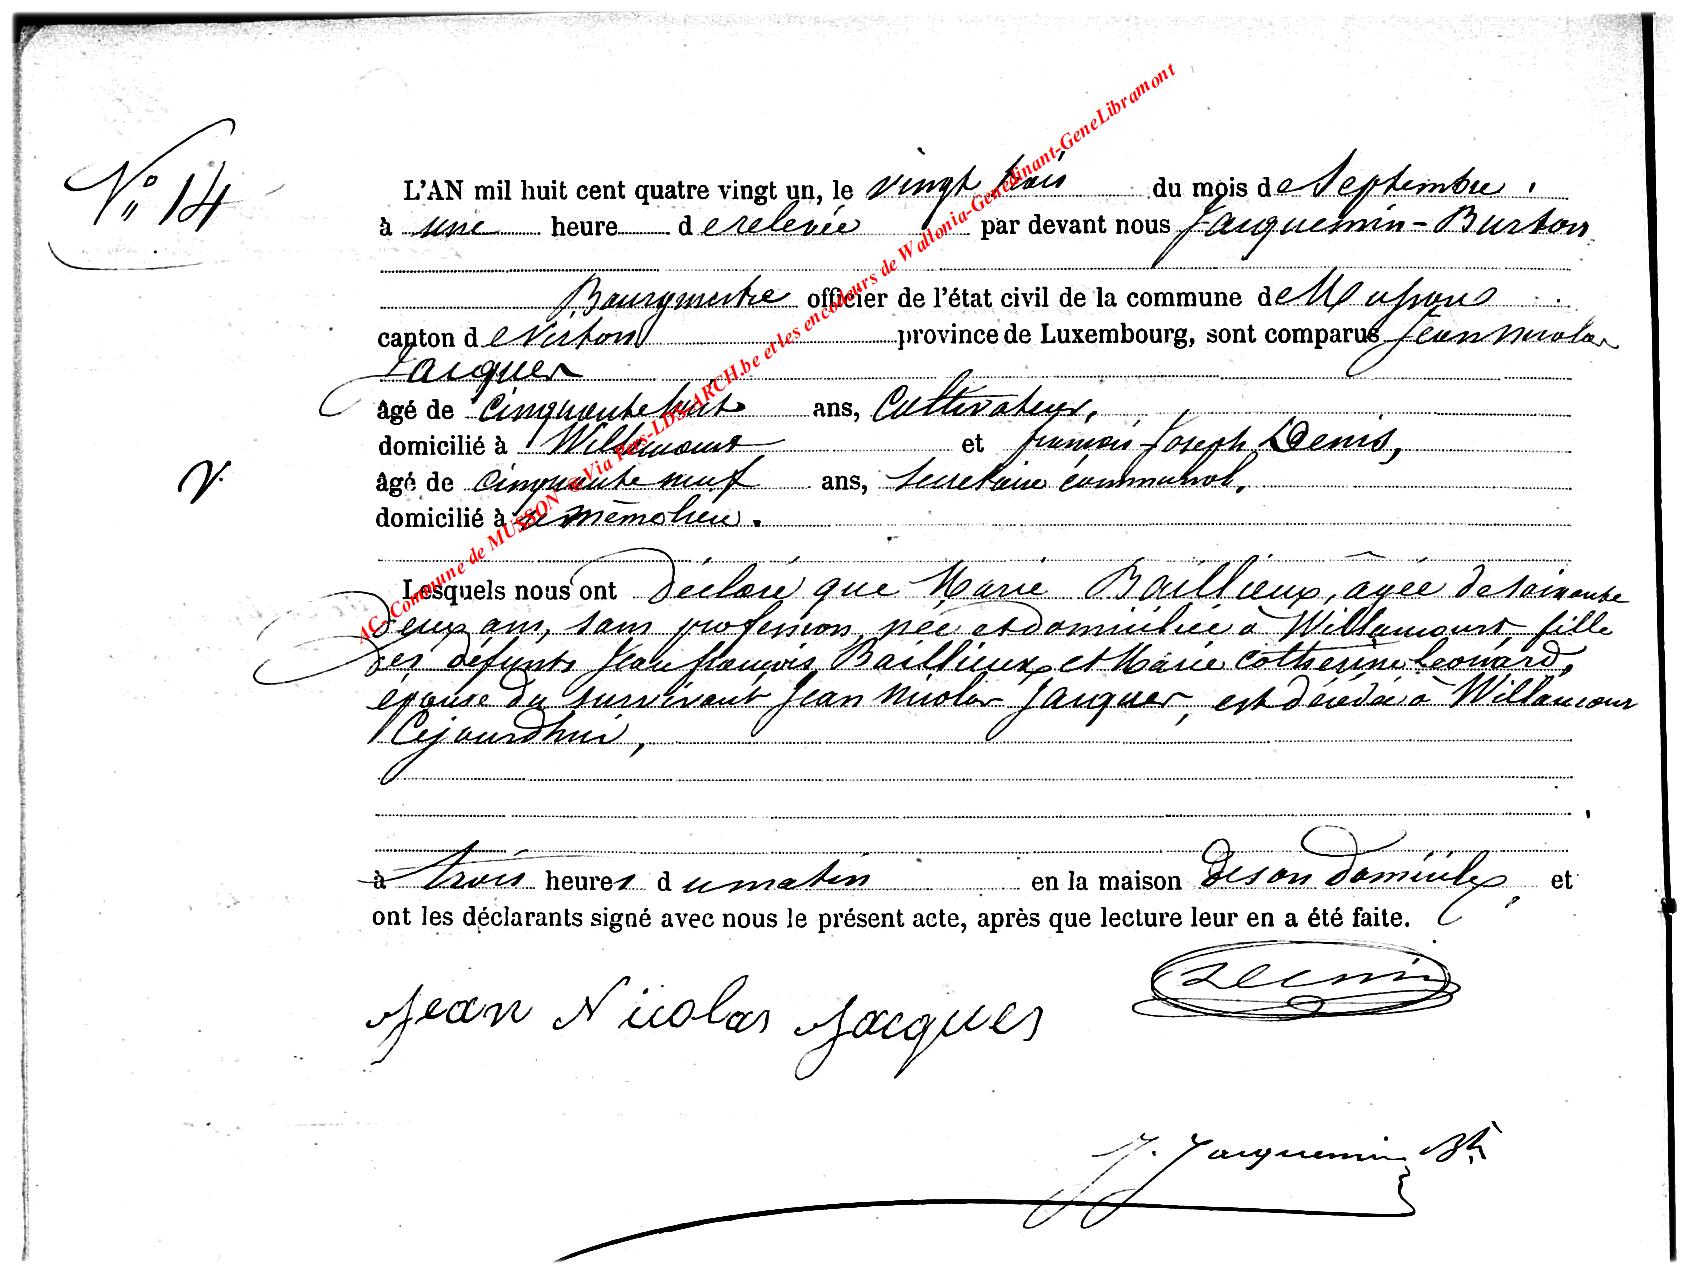 N° 14
L'AN mil huit cent quatre vingt un, le vingt trois du mois de Septembre,
à une heure de relevée par devant nous Jacquemin-Burton
Bourgmestre officier de l'état civil de la commune de Musson
canton de Virton province de Luxembourg, sont comparus Jean Nicolas
Jacques
âgé de cinquante huit ans, Cultivateur,
domicilié à Willancourt et françois Joseph Denis,
âgé de cinquante neuf ans, secretaire communal,
domicilié à même lieu.
V.
Lesquels nous ont déclaré que Marie Baillieux, agée de soixante
deux ans, sans profession, née et domiciliée à Willancourt, fille
des défunts Jean françois Baillieux et Marie Catherine Leonard,
épouse du survivant Jean Nicolas Jacques, est décédée à Willancourt
Cejourdhui,
à trois heures du matin en la maison de son domicile, et
ont les déclarants signé avec nous le présent acte, après que lecture leur en a été faite.
Jean Nicolas Jacques
Denis
J. Jacquemin Bt
AC- Commune de MUSSON @Via Pars-LDS-ARCH.be et les encodeurs de Wallonia-Genedinant-GeneLibramont